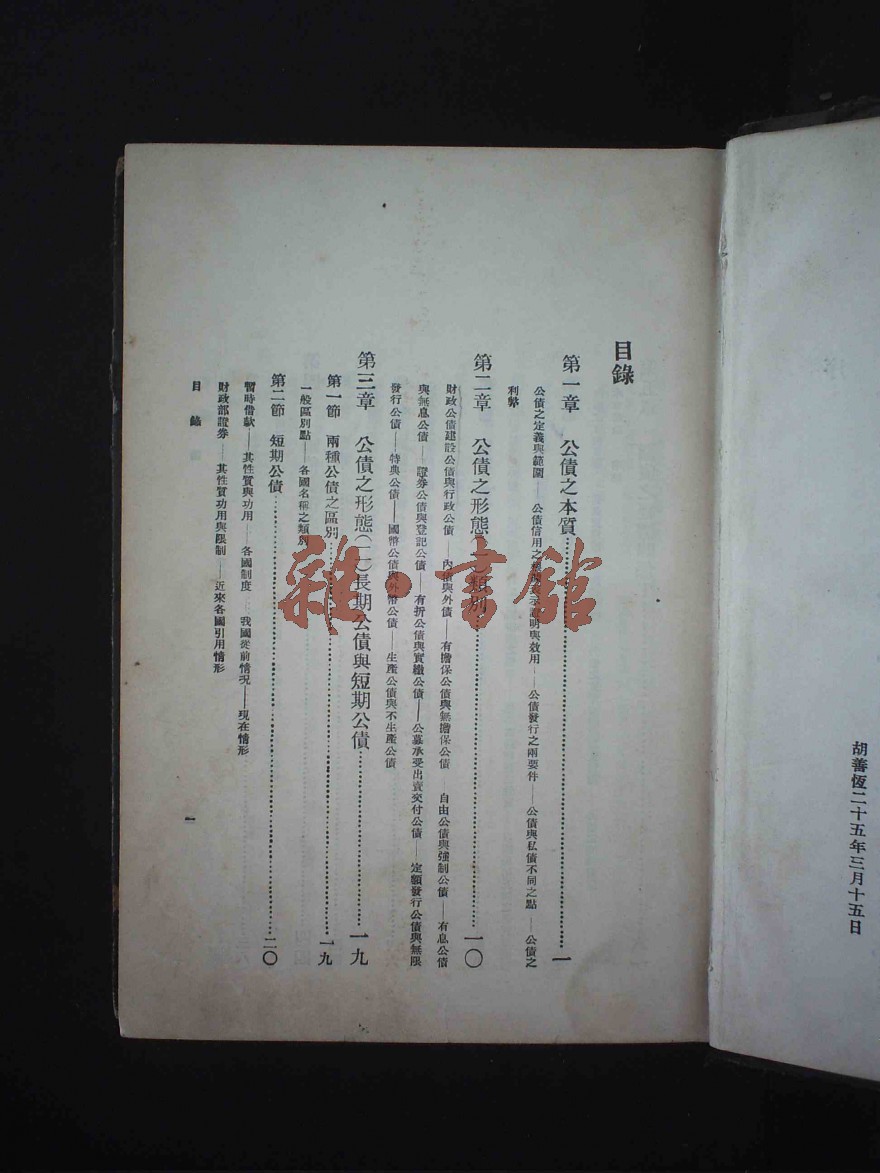 胡善恆二十五年三月十五日
目錄
第一章 公債之本質……一
公債之定義與範圍——公債信用之 說明與效用——公債發行之兩要件——公債與私債不同之點——公債之
利弊
第二章 公債之形態(一)類別……一〇
財政公債建設公債與行政公債——內債與外債——有擔保公債與無擔保公債 自由公債與強制公債——有息公債
與無息公債——證券公債與登記公債——有折公債與實繳公債——公募承受出賣交付公債——定額發行公債與無限
發行公債——特典公債——國幣公債與外幣公債——生產公債與不生產公債
第三章 公債之形態(二)長期公債與短期公債……一九
第一節 兩種公債之區別……一九
一般區別點——各國名稱之類別
第二節 短期公債……二〇
暫時借款——其性質與功用——各國制度——我國從前情況——現在情形
財政部證券——其性質功用與限制——近來各國引用情形
目錄
一
雜·書館